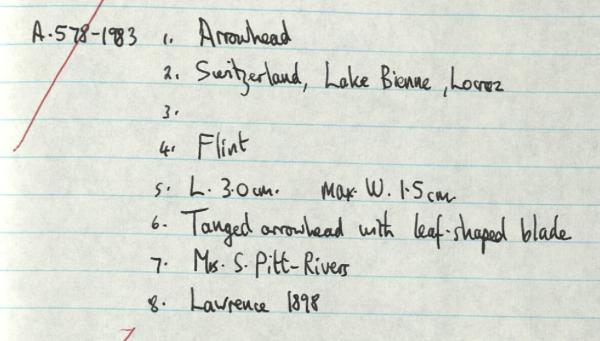 A.578-1983 1. Arrowhead
2. Switzerland, Lake Bienne, Locraz
3.
4. Flint
5. L. 3.0cm. Max. W. 1.5cm
6. Tanged arrowhead with leaf-shaped blade
7. Mrs. S. Pitt-Rivers
8. Lawrence 1898